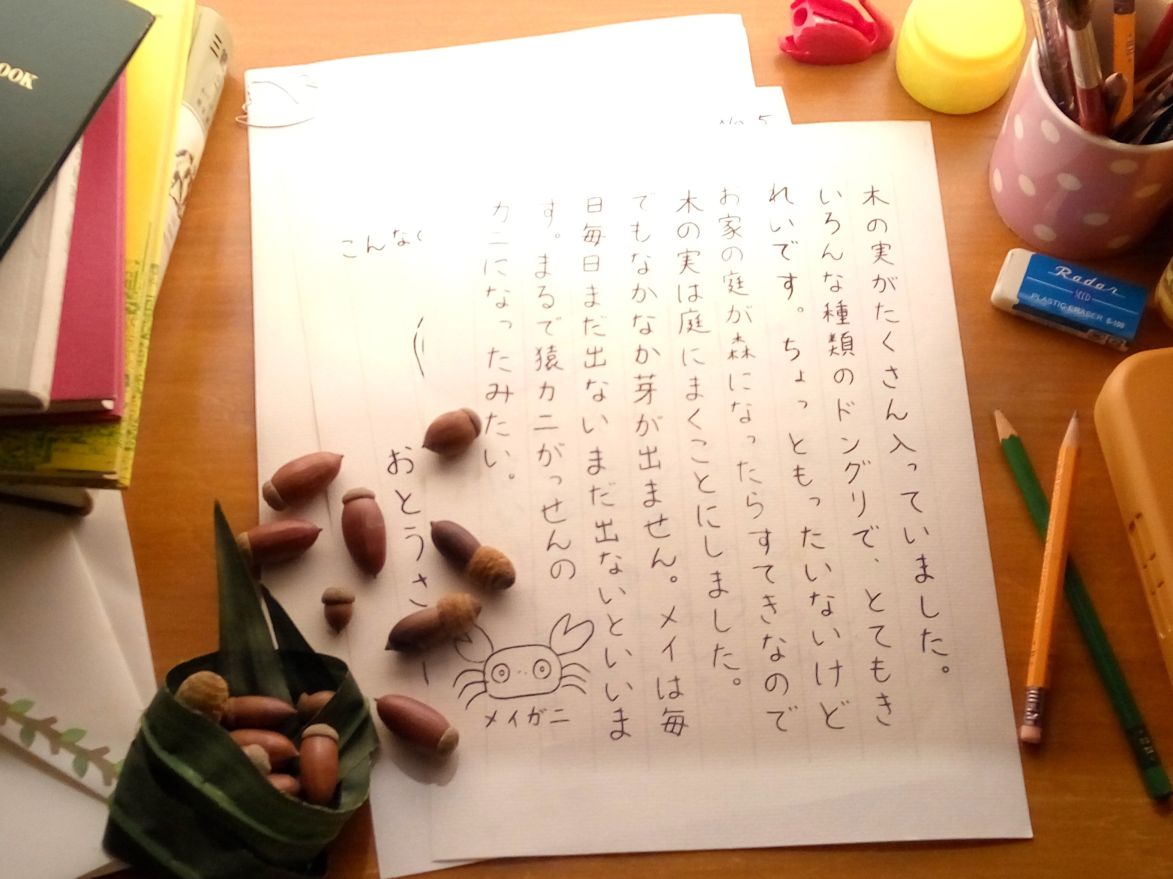 木の実がたくさん入っていました。
いろんな種類のドングリで、とてもき
れいです。ちょっともったいないけど
お家の庭が森になったらすてきなので
木の実は庭にまくことにしました。
でもなかなか芽が出ません。メイは毎
日毎日まだ出ないまだ出ないといいま
す。まるで猿カニがっせんの
カニになったみたい。
メイガニ
No 5
こんな
おとうさ
OOK
Radar
SEED
PLASTIC ERASER S-100